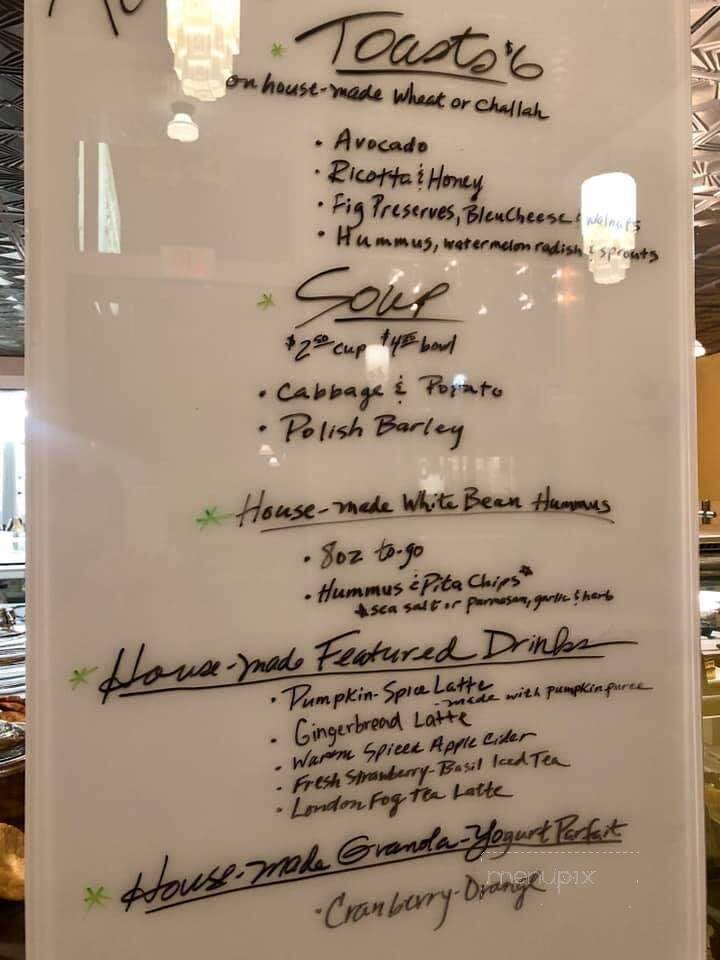 Toasts $6
on house-made Wheat or Challah
• Avocado
• Ricotta & Honey
• Fig Preserves, Bleu Cheese & Walnuts
• Hummus, watermelon radish & sprouts
* Soup
$2.50 cup $4.25 bowl
• Cabbage & Potato
• Polish Barley
* House-made White Bean Hummus
• 8oz to-go
• Hummus & Pita Chips*
*sea salt or parmesan, garlic & herb
* House-made Featured Drinks
• Pumpkin-Spice Latte
-made with pumpkin puree
• Gingerbread Latte
• Warm Spiced Apple Cider
• Fresh Strawberry-Basil Iced Tea
• London Fog Tea Latte
* House-made Granola-Yogurt Parfait
• Cranberry-Orange
menupix